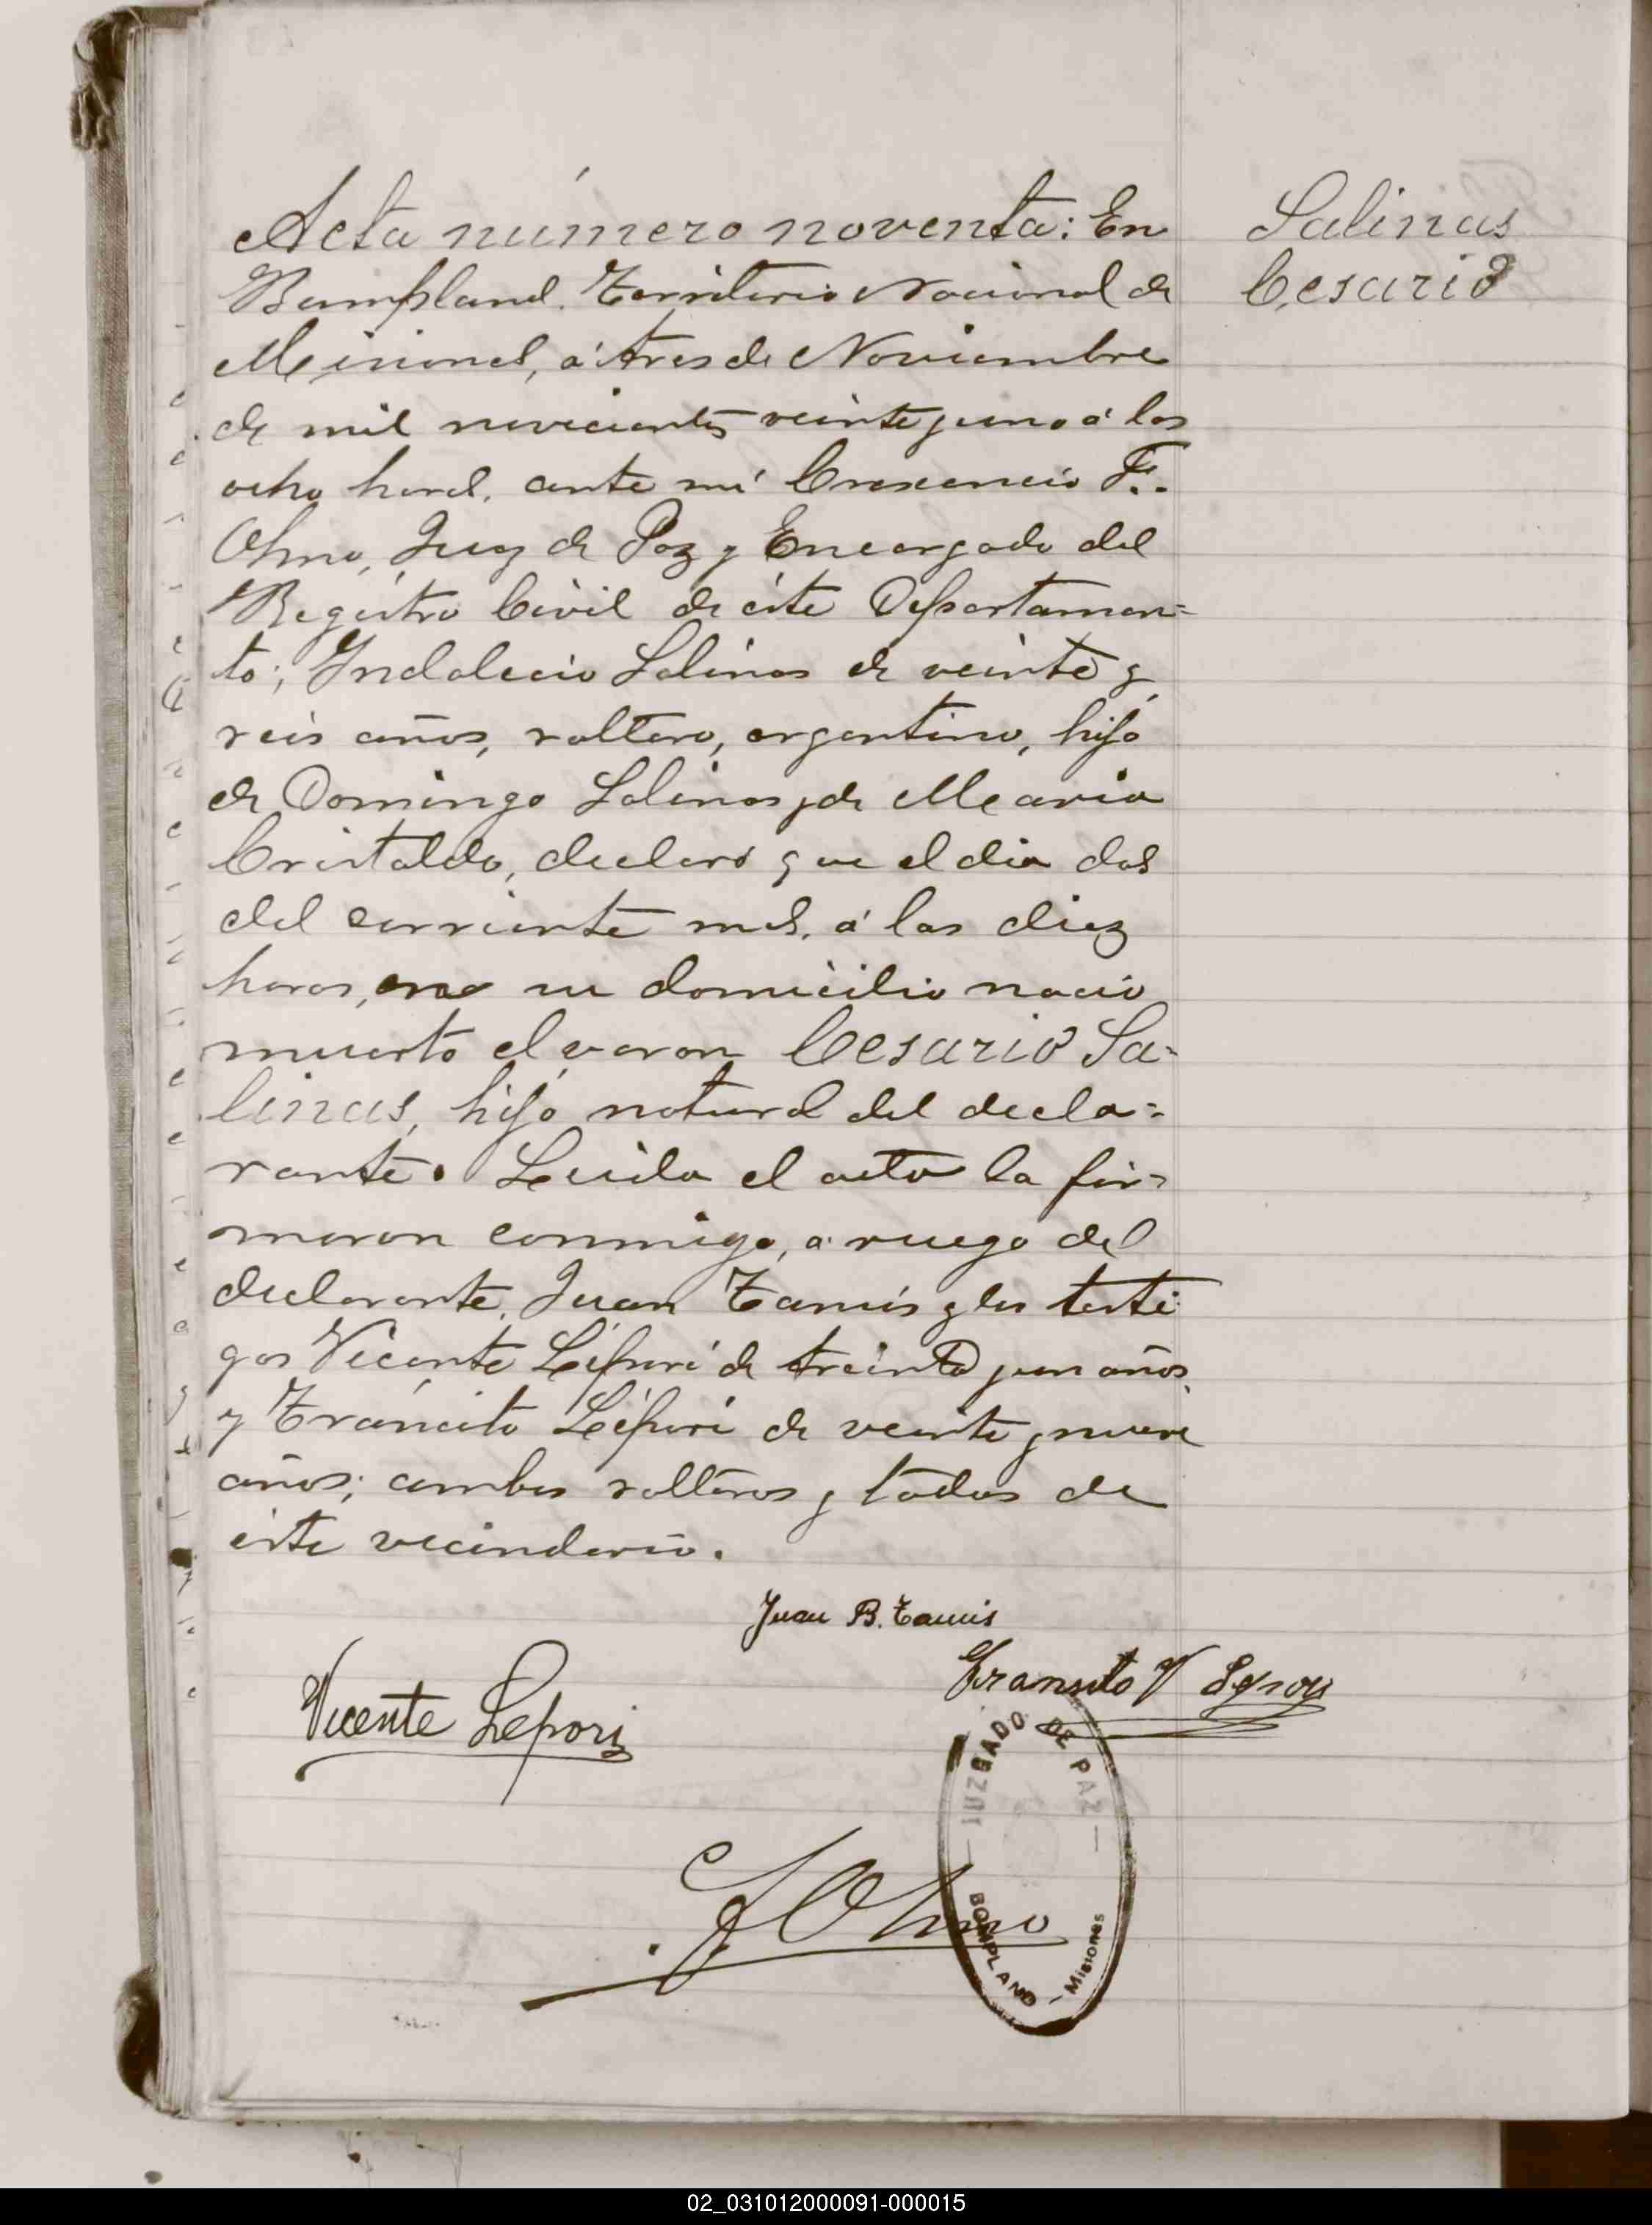 Acta número noventa: En
Bompland. Territorio Nacional de
Misiones, á tres de Noviembre
de mil novecientos veinte y uno á las
ocho horas, ante mí Crescencio F.
Olmo, Juez de Paz y Encargado del
Registro Civil de éste Departamen=
to; Indalecio Salinas de veinte y
seis años, soltero, argentino, hijo
de Domingo Salinas y de Maria
Cristaldo, declaró que el dia dos
del corriente mes, á las diez
horas, en su domicilio nació
muerto el varon Cesario Sa=
linas, hijo natural del decla=
rante. Leida el acta la fir=
maron conmigo, a ruego del
declarante, Juan Tamis y los testi
gos Vicente Lépori de treinta y un años
y Tráncito Lépori de veinte y nueve
años; ambos solteros y todos de
éste vecindario.
Salinas
Cesario
Juan B. Tamis
Vicente Lepori
Transito V Lepori
F Olmo
JUZGADO DE PAZ
BOMPLAND - Misiones
02_031012000091-000015